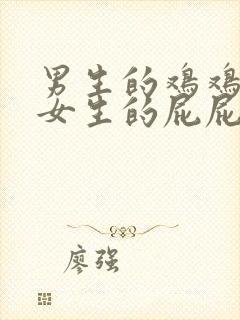 男生的鸡鸡
女生的屁屁
廖强